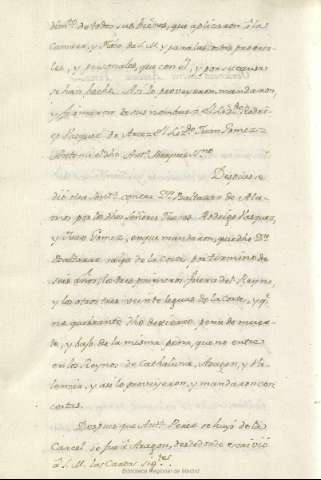 dim.to de todos sus bienes, que aplicaron á la
Camara, y Fisco de S. M. y para las costas procesa-
les, y personales, que con el, y por su causa
se han hecho. Asi lo proveyeron, mandaron,
y firmaron de sus nombres = El Lz.do Rodri-
go Vazquez de Arce = El Lz.do Juan Gomez =
Antemi = Ant.o Marquez =
Despues se
dió otra Sent.a contra D.n Balthasar de Ala-
mos por los dhos Señores Jueces Rodrigo Vazquez,
y Juan Gomez, en que mandaron, que dho D.n
Balthasar salga de la Corte por termino de
seis años, los tres primeros fuera del Reyno,
y los otros tres veinte leguas de la Corte, y q.e
no quebrante dho destierro pena de muer-
te, y bajo de la misma pena, que no entre
en los Reynos de Cathaluña, Aragon, y Va-
lencia, y asi lo proveyeron, y mandaron con
costas.
Despues que Ant.o Perez se huyó de la
Carcel, se fue á Aragon, desde donde escrivió
á S. M. las Cartas sig.tes
Biblioteca Regional de Madrid